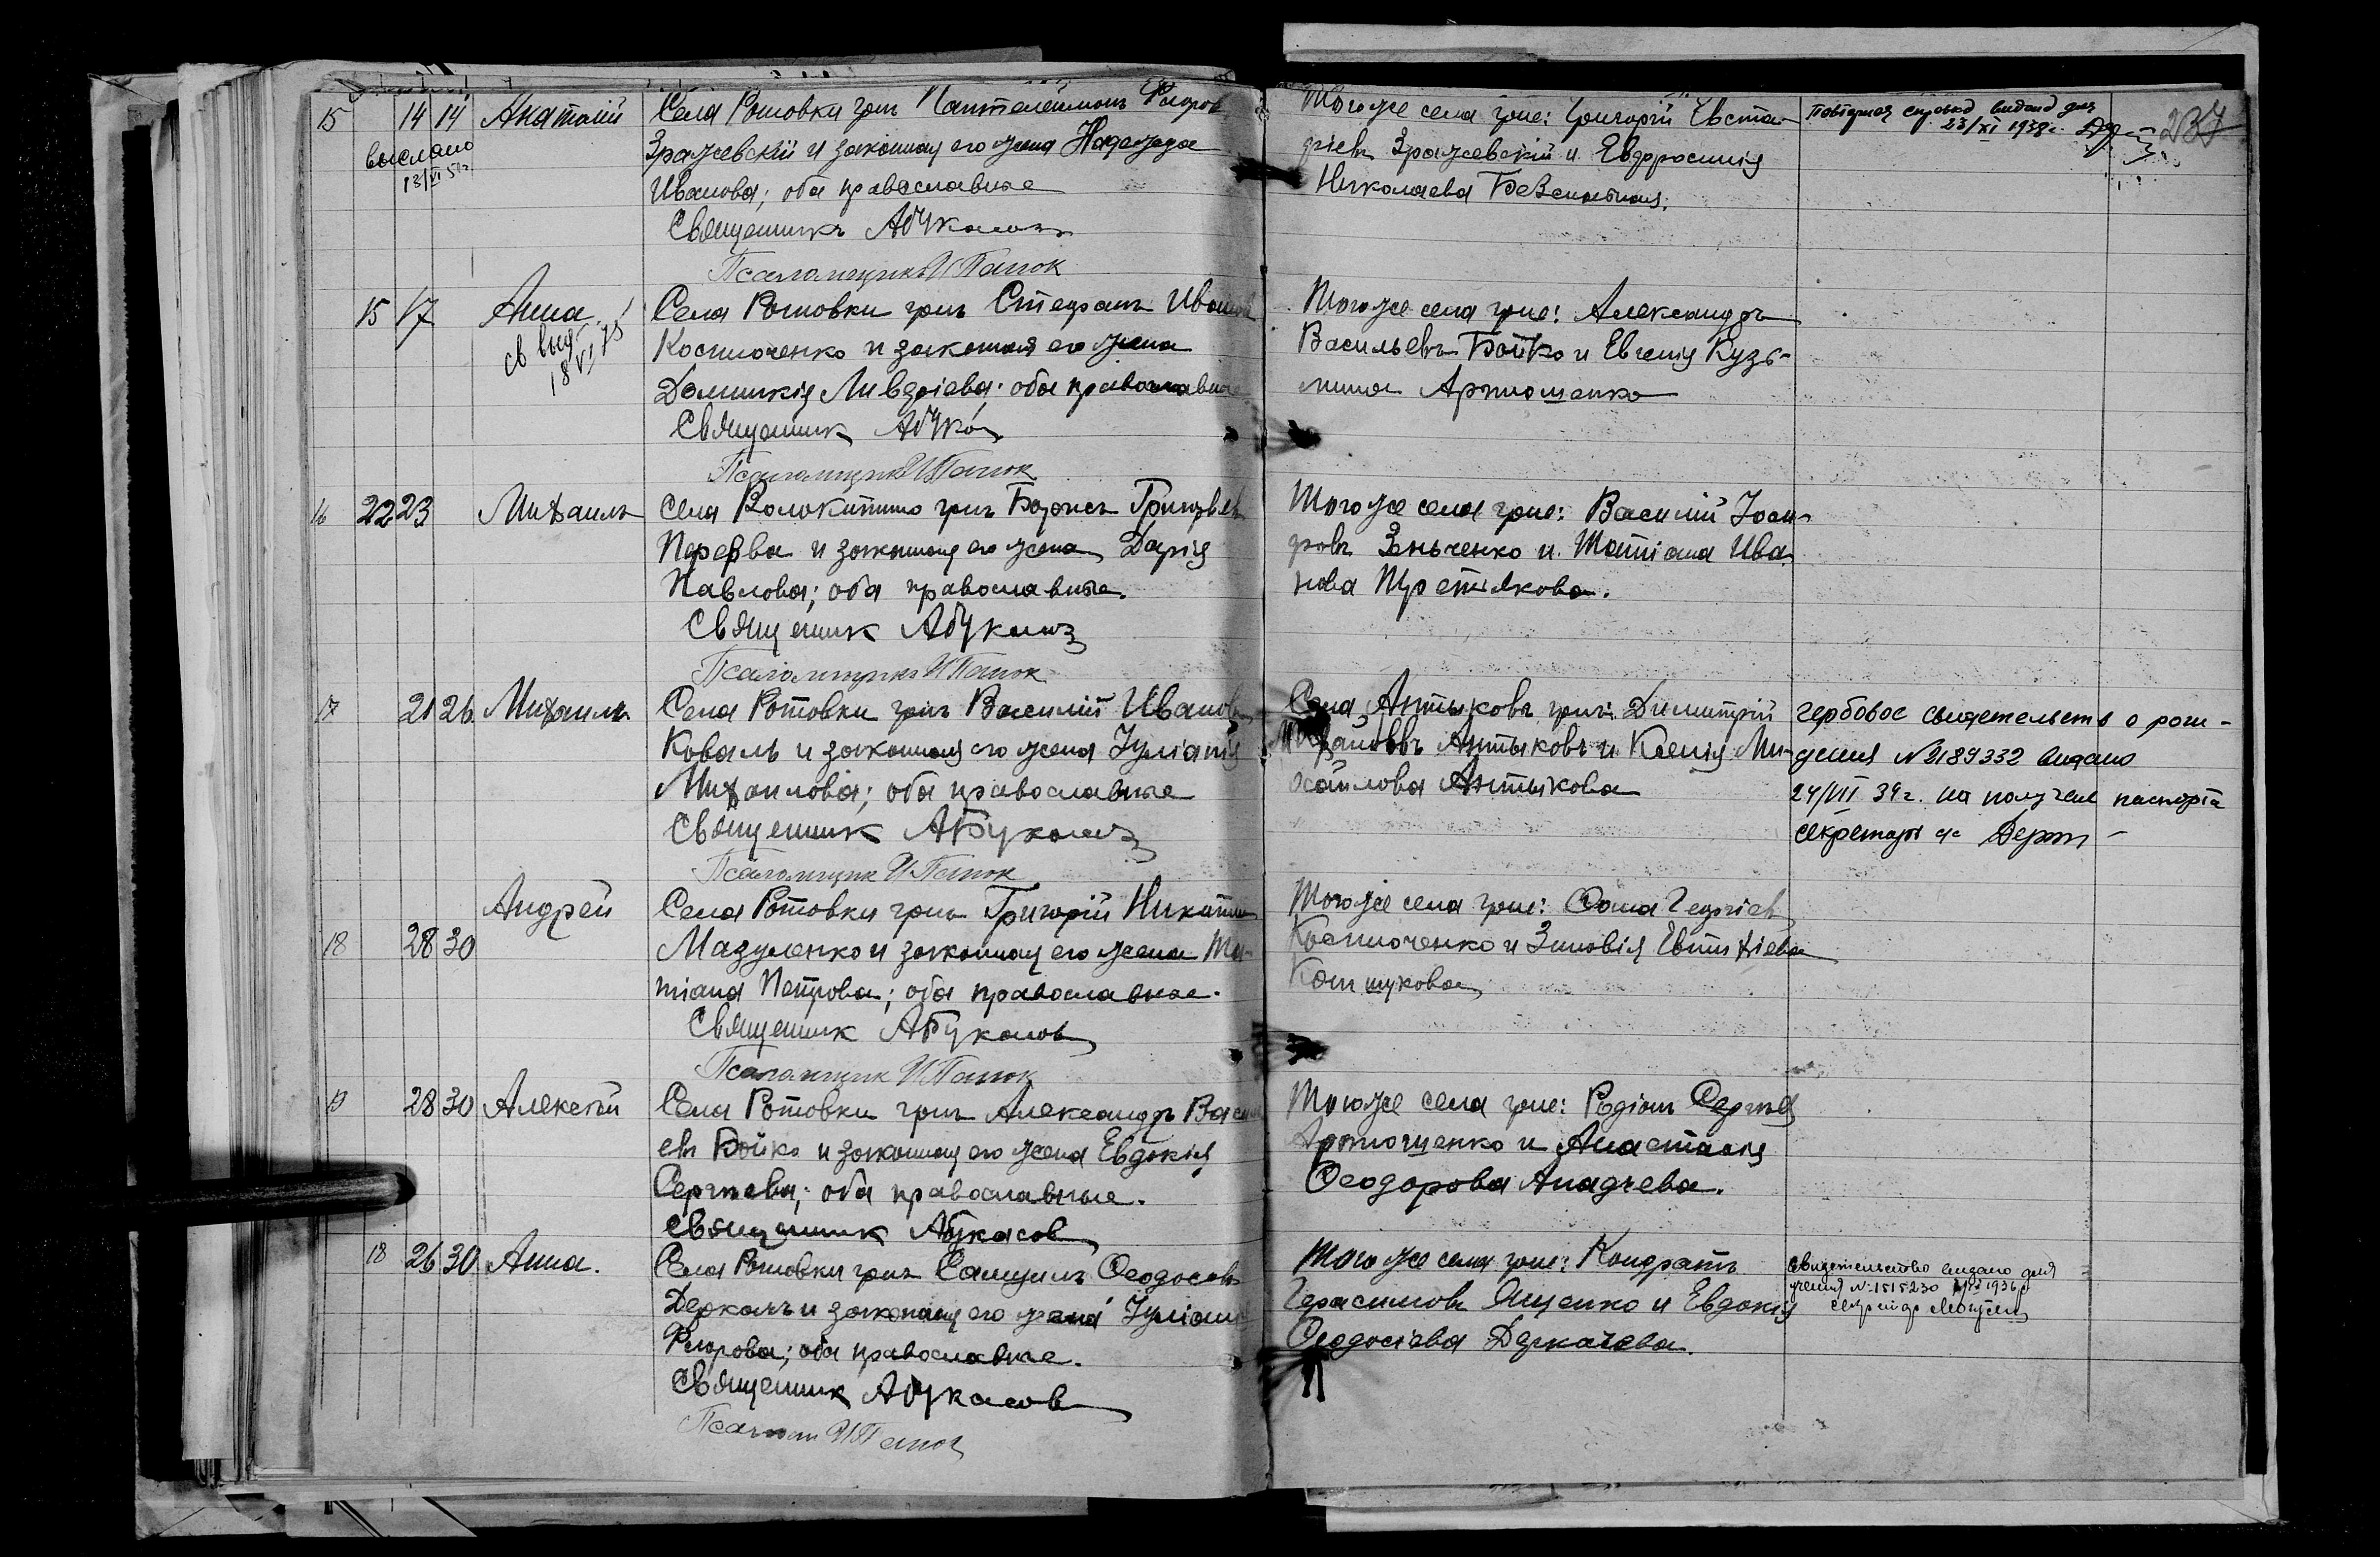 15 14 14 Анатолій
выслано
13/VI 51г.
Села Ротовки грн Пантелеймонъ Флоров
Зражевскій и законная его жена Надежда
Иванова; оба православные
Священникъ Абукасов
Псаломщикъ И Панок
Того же села гр-не: Григорій Евста-
фіевъ Зражевскій и Евфросинія
Николаева
Повторная справка видана для
23/XI 1938г.
237
15 17 Анна
св выд.
18 VI 75
Села Ротовки грнъ Стефанъ Иванов
Костюченко и законная его жена
Домникія; оба православные
Священник Абук
Псаломщикъ И Панок
Того же села гр-не: Александръ
Васильевъ Бойко и Евгенія Кузь-
мина Артюшенко
16 22 23 Михаилъ
Села Волокитино грнъ Борисъ Григорьев
Перерва и законная его жена Дарія
Павлова; оба православные.
Священник Абукасов
Псаломщикъ И Панок
Того же села гр-не: Василий
Зеньченко и Татіана Ива-
нова Третьякова.
17 21 26 Михаилъ
Села Ротовки грнъ Василій Иванов
Коваль и законная его жена Іуліанія
Михаилова; оба православные
Священник Абукасов
Псаломщик И Панок
Села гр-не: Димитрій
Михайловъ Антыковъ и Ксенія Ми-
хайлова Антыкова
гербовое свидетельств о рож-
дения №2189332 видано
24/VII 34г. на получен паспорта
секретарь
Андрей
18 28 30
Села Ротовки грнъ Григорій Никитин
Мазуленко и законная его жена Та-
тіана Петрова; оба православные.
Священник Абукасовъ
Псаломщик И Панок
Того же села гр-не: Ѳома Георгіевъ
Костюченко и Зиновія Евтихіева
19 28 30 Алексѣй
Села Ротовки грнъ Александръ Василь
евъ Бойко и законная его жена Евдокія
Сергѣева; оба православные.
Священник Абукасов
Того же села гр-не: Родіонъ Сергѣев
Артюшенко и Анастасія
Ѳеодорова
18 26 30 Анна.
Села Ротовки грнъ Самуилъ Ѳеодосовъ
Деркачъ и законная его жена Іуліанія
Флорова; оба православные.
Священник Абукасов
И Панок
Того же села гр-не: Кондратъ
Герасимовъ Яценко и Евдокія
Ѳеодосіева Деркачева.
Свидетельство видано для
учения №1515230 1936г